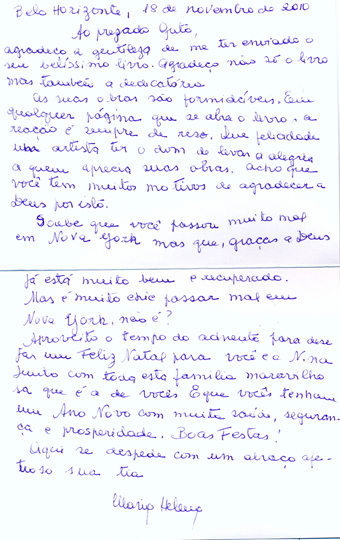 Belo Horizonte, 18 de novembro de 2010
Ao prezado Guto,
agradeço a gentileza de me ter enviado o
seu belíssimo livro. Agradeço não só o livro
mas também a dedicatória
As suas obras são formidáveis. Em
qualquer página que se abra o livro, a
reação é sempre de riso. Que felicidade
um artista ter o dom de levar a alegria
a quem aprecia suas obras. Acho que
você tem muitos motivos de agradecer a
Deus por isto.
Soube que você passou muito mal
em Nova York mas que, graças a Deus
já está muito bem e recuperado.
Mas é muito chic passar mal em
Nova York, não é?
Aproveito o tempo do advento para dese
jar um Feliz Natal para você e a Nina
junto com toda esta família maravilho
sa que é a de vocês E que vocês tenham
um Ano Novo com muita saúde, seguran-
ça e prosperidade. Boas Festas!
Aqui se despede com um abraço afe-
tuoso sua tia
Maria Helena